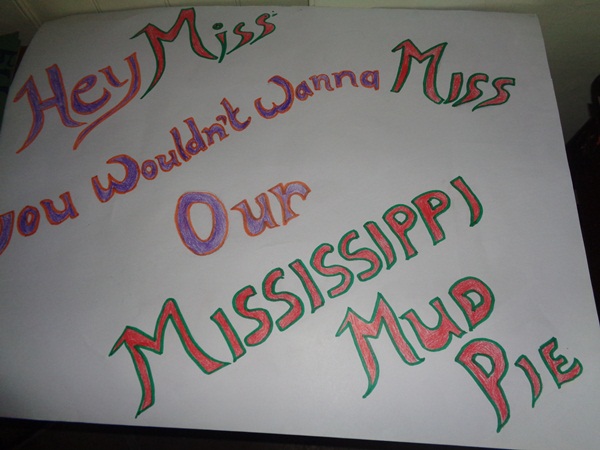 Hey Miss
you wouldn't wanna Miss
Our
MISSISSIPPI
MUD
PIE